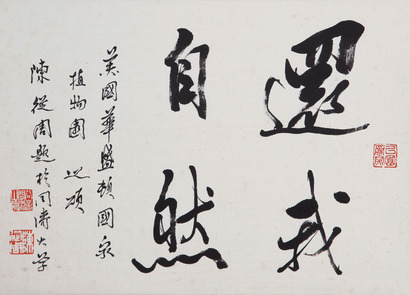 還我
自然
美國華盛頓國家
植物園
陳從周題於同濟大学